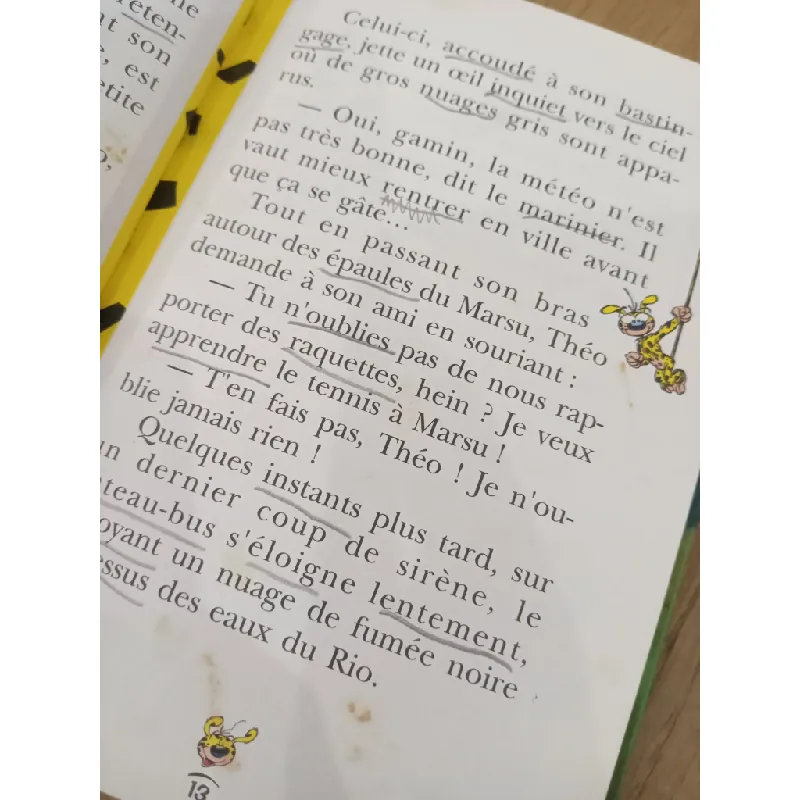 ne
éten-
nt son
, est
etite
Celui-ci, accoudé à son bastin-
gage, jette un œil inquiet vers le ciel
où de gros nuages gris sont appa-
rus.
— Oui, gamin, la météo n'est
pas très bonne, dit le marinier. Il
vaut mieux rentrer en ville avant
que ça se gâte...
Tout en passant son bras
autour des épaules du Marsu, Théo
demande à son ami en souriant :
— Tu n'oublies pas de nous rap-
porter des raquettes, hein ? Je veux
apprendre le tennis à Marsu !
— T'en fais pas, Théo ! Je n'ou-
blie jamais rien !
Quelques instants plus tard, sur
un dernier coup de sirène, le
ateau-bus s'éloigne lentement,
oyant un nuage de fumée noire
essus des eaux du Rio.
13